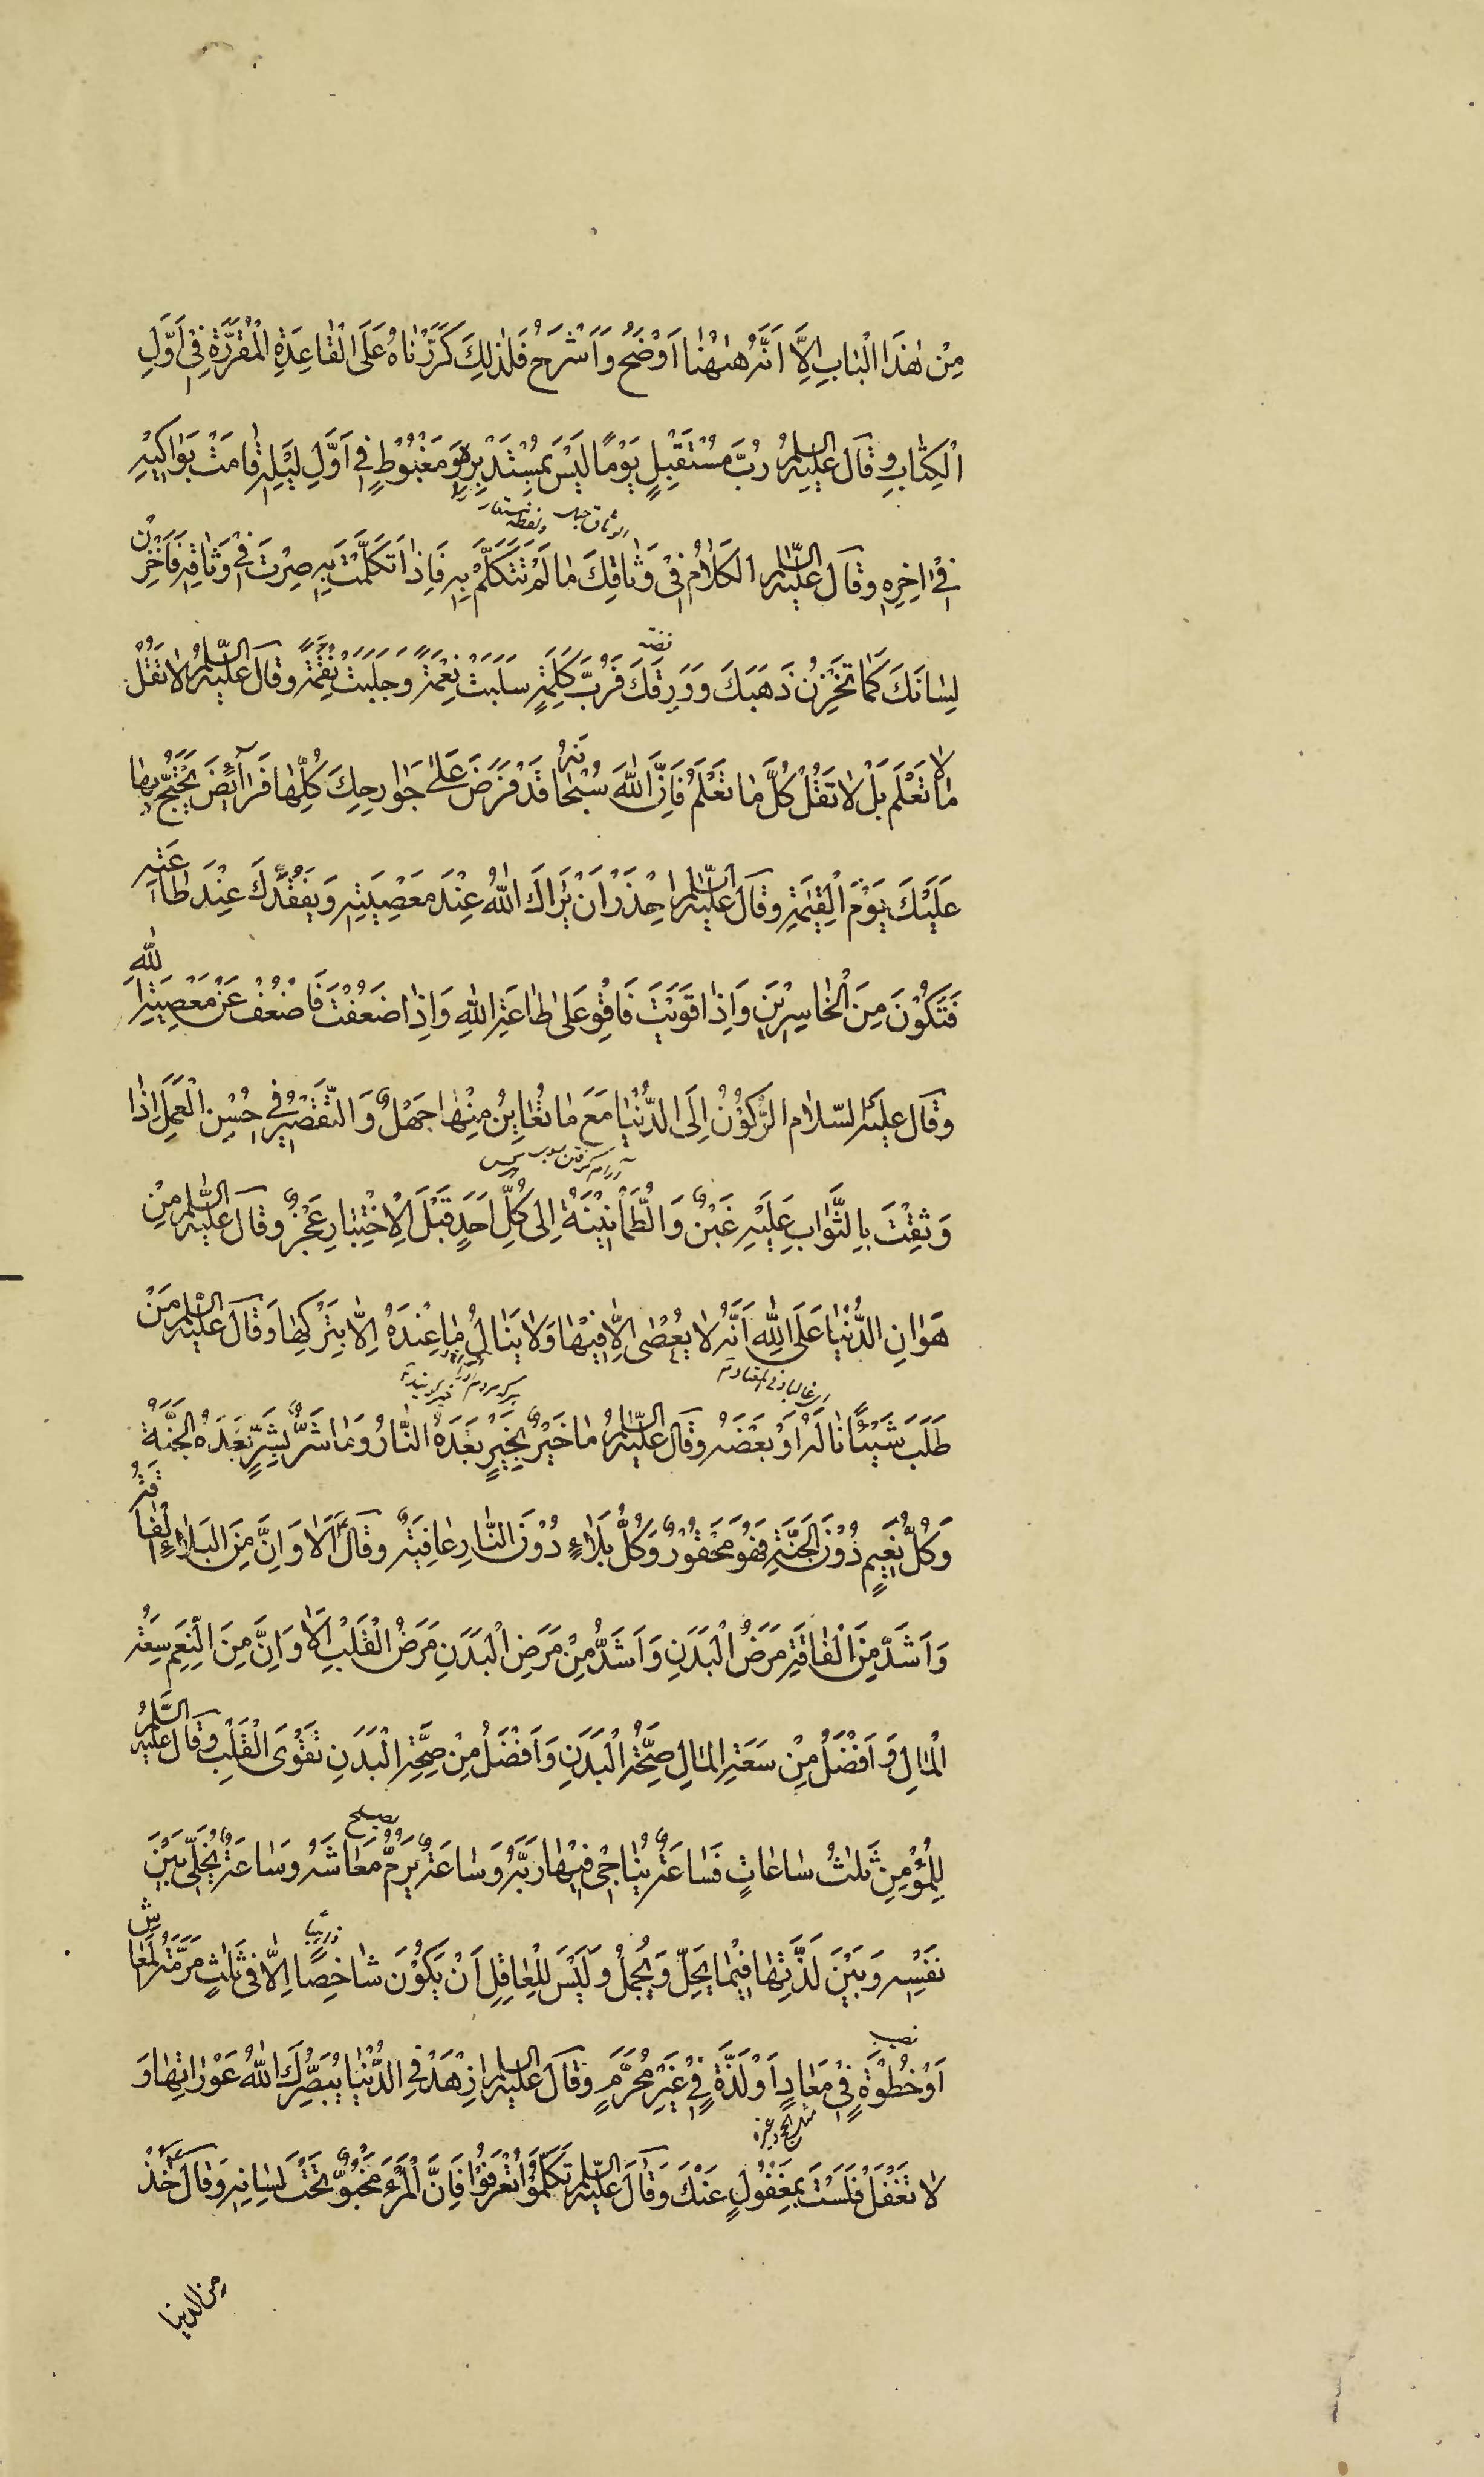 مِنْ هٰذَا الْبٰابِ اِلَّا اَنَّهُ هٰهُنٰا اَوْضَحُ وَ اَشْرَحُ فَلِذٰلِكَ كَرَّرْنٰاهُ عَلَى الْقٰاعِدَةِ الْمُقَرَّرَةِ فِى اَوَّلِ
الْكِتٰابِ وَ قٰالَ عَلَيْهِ السَّلٰمُ رُبَّ مُسْتَقْبِلٍ يَوْمًا لَيْسَ بِمُسْتَدْبِرِهِ وَ مَغْبُوطٍ فِى اَوَّلِ لَيْلِهِ قٰامَتْ بَوٰاكِيْهِ
فِىْ اٰخِرِهِ وَ قٰالَ عَلَيْهِ السَّلٰمُ الْكَلٰامُ فِىْ وَثٰاقِكَ مٰا لَمْ تَتَكَلَّمْ بِهِ فَاِذٰا تَكَلَّمْتَ بِهِ صِرْتَ فِىْ وَثٰاقِهِ فَاخْزُنْ
فضه
لِسٰانَكَ كَمٰا تَخْزُنُ ذَهَبَكَ وَ وَرِقَكَ فَرُبَّ كَلِمَةٍ سَلَبَتْ نِعْمَةً وَ جَلَبَتْ نِقْمَةً وَ قٰالَ عَلَيْهِ السَّلٰمُ لٰا تَقُلْ
مٰا لٰا تَعْلَمُ بَلْ لٰا تَقُلْ كُلَّ مٰا تَعْلَمُ فَاِنَّ اللّٰهَ سُبْحٰانَهُ قَدْ فَرَضَ عَلٰى جَوٰارِحِكَ كُلِّهٰا فَرٰائِضَ يَحْتَجُّ بِهٰا
عَلَيْكَ يَوْمَ الْقِيٰمَةِ وَ قٰالَ عَلَيْهِ السَّلٰمُ احْذَرْ اَنْ يَرٰاكَ اللّٰهُ عِنْدَ مَعْصِيَتِهِ وَ يَفْقُدَكَ عِنْدَ طٰاعَتِهِ
فَتَكُوْنَ مِنَ الْخٰاسِرِيْنَ وَ اِذٰا قَوِيْتَ فَاقْوَ عَلٰى طٰاعَةِ اللّٰهِ وَ اِذٰا ضَعُفْتَ فَاضْعُفْ عَنْ مَعْصِيَةِ اللّٰهِ
وَ قٰالَ عَلَيْهِ السَّلٰام الرُّكُوْنُ اِلَى الدُّنْيٰا مَعَ مٰا تُعٰايِنُ مِنْهٰا جَهْلٌ وَ التَّقْصِيْرُ فِى حُسْنِ الْعَمَلِ اِذٰا
وَثِقْتَ بِالثَّوٰابِ عَلَيْهِ غَبْنٌ وَ الطُّمَأْنِيْنَةُ اِلٰى كُلِّ اَحَدٍ قَبْلَ الْاِخْتِبٰارِ عَجْزٌ وَ قٰالَ عَلَيْهِ السَّلٰمُ مِنْ
هَوٰانِ الدُّنْيٰا عَلَى اللّٰهِ اَنَّهُ لٰا يُعْصٰى اِلَّا فِيْهٰا وَ لٰا يَنٰالُ مٰا عِنْدَهُ اِلَّا بِتَرْكِهٰا وَ قٰالَ عَلَيْهِ السَّلٰمُ مَنْ
طَلَبَ شَيْئًا نٰالَهُ اَوْ بَعْضَهُ وَ قٰالَ عَلَيْهِ السَّلٰمُ مٰا خَيْرٌ بِخَيْرٍ بَعْدَهُ النّٰارُ وَ مٰا شَرٌّ بِشَرٍّ بَعْدَهُ الْجَنَّةُ
وَ كُلُّ نَعِيْمٍ دُوْنَ الْجَنَّةِ فَهُوَ مَحْقُوْرٌ وَ كُلُّ بَلٰاءٍ دُوْنَ النّٰارِ عٰافِيَةٌ وَ قٰالَ ع اَلٰا وَ اِنَّ مِنَ الْبَلٰاءِ الْفٰاقَةُ
وَ اَشَدُّ مِنَ الْفٰاقَةِ مَرَضُ الْبَدَنِ وَ اَشَدُّ مِنْ مَرَضِ الْبَدَنِ مَرَضُ الْقَلْبِ اَلٰا وَ اِنَّ مِنَ النِّعَمِ سَعَةُ
الْمٰالِ وَ اَفْضَلُ مِنْ سَعَةِ الْمٰالِ صِحَّةُ الْبَدَنِ وَ اَفْضَلُ مِنْ صِحَّةِ الْبَدَنِ تَقْوَى الْقَلْبِ وَ قٰالَ عَلَيْهِ السَّلٰمُ
يصلح
لِلْمُؤْمِنِ ثَلٰثُ سٰاعٰاتٍ فَسٰاعَةٌ يُنٰاجِى فِيْهٰا رَبَّهُ وَ سٰاعَةٌ يَرُمُّ مَعٰاشَهُ وَ سٰاعَةٌ يُخَلِّى بَيْنَ
نَفْسِهِ وَ بَيْنَ لَذَّتِهٰا فِيْمٰا يَحِلُّ وَ يَجْمُلُ وَ لَيْسَ لِلْعٰاقِلِ اَنْ يَكُوْنَ شٰاخِصًا اِلَّا فِى ثَلٰثٍ مَرَمَّةٍ لِمَعٰاشٍ
نصيب
اَوْ خُطْوَةٍ فِىْ مَعٰادٍ اَوْ لَذَّةٍ فِىْ غَيْرِ مُحَرَّمٍ وَ قٰالَ عَلَيْهِ السَّلٰمُ ازْهَدْ فِى الدُّنْيٰا يُبَصِّرْكَ اللّٰهُ عَوْرٰاتِهٰا وَ
لٰا تَغْفُلْ فَلَسْتَ بِمَغْفُولٍ عَنْكَ وَ قٰالَ عَلَيْهِ السَّلٰمُ تَكَلَّمُوْا تُعْرَفُوْا فَاِنَّ الْمَرْءَ مَخْبُوٌّ تَحْتَ لِسٰانِهِ وَ قٰالَ ع خُذْ
من الدنيا